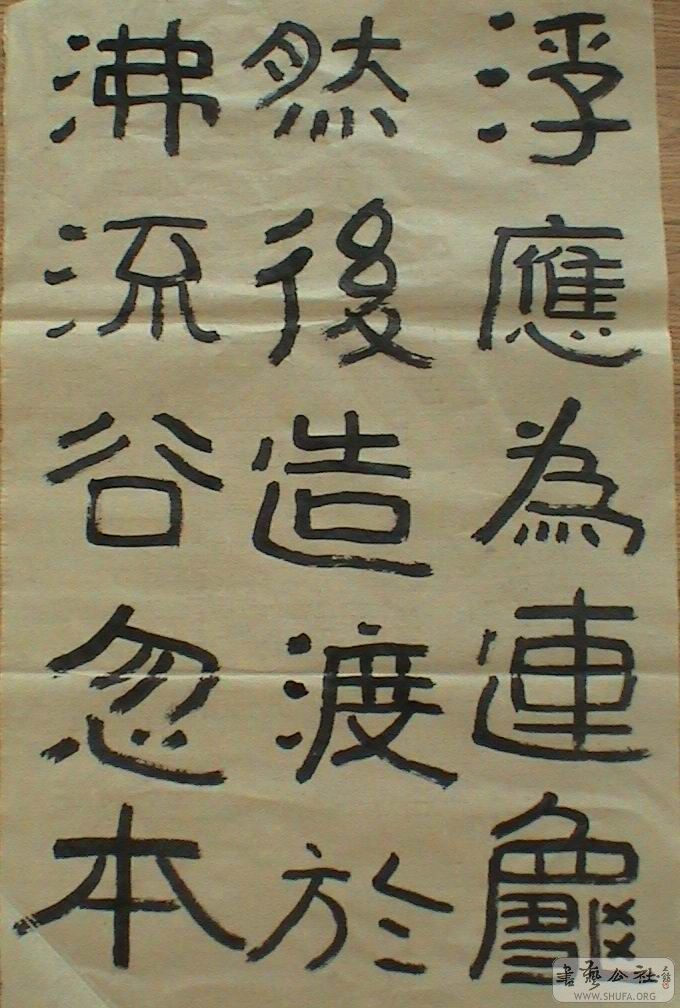 浮應為連龜
然後造渡於
沸流谷忽本
書藝公社
WWW.SHUFA.ORG